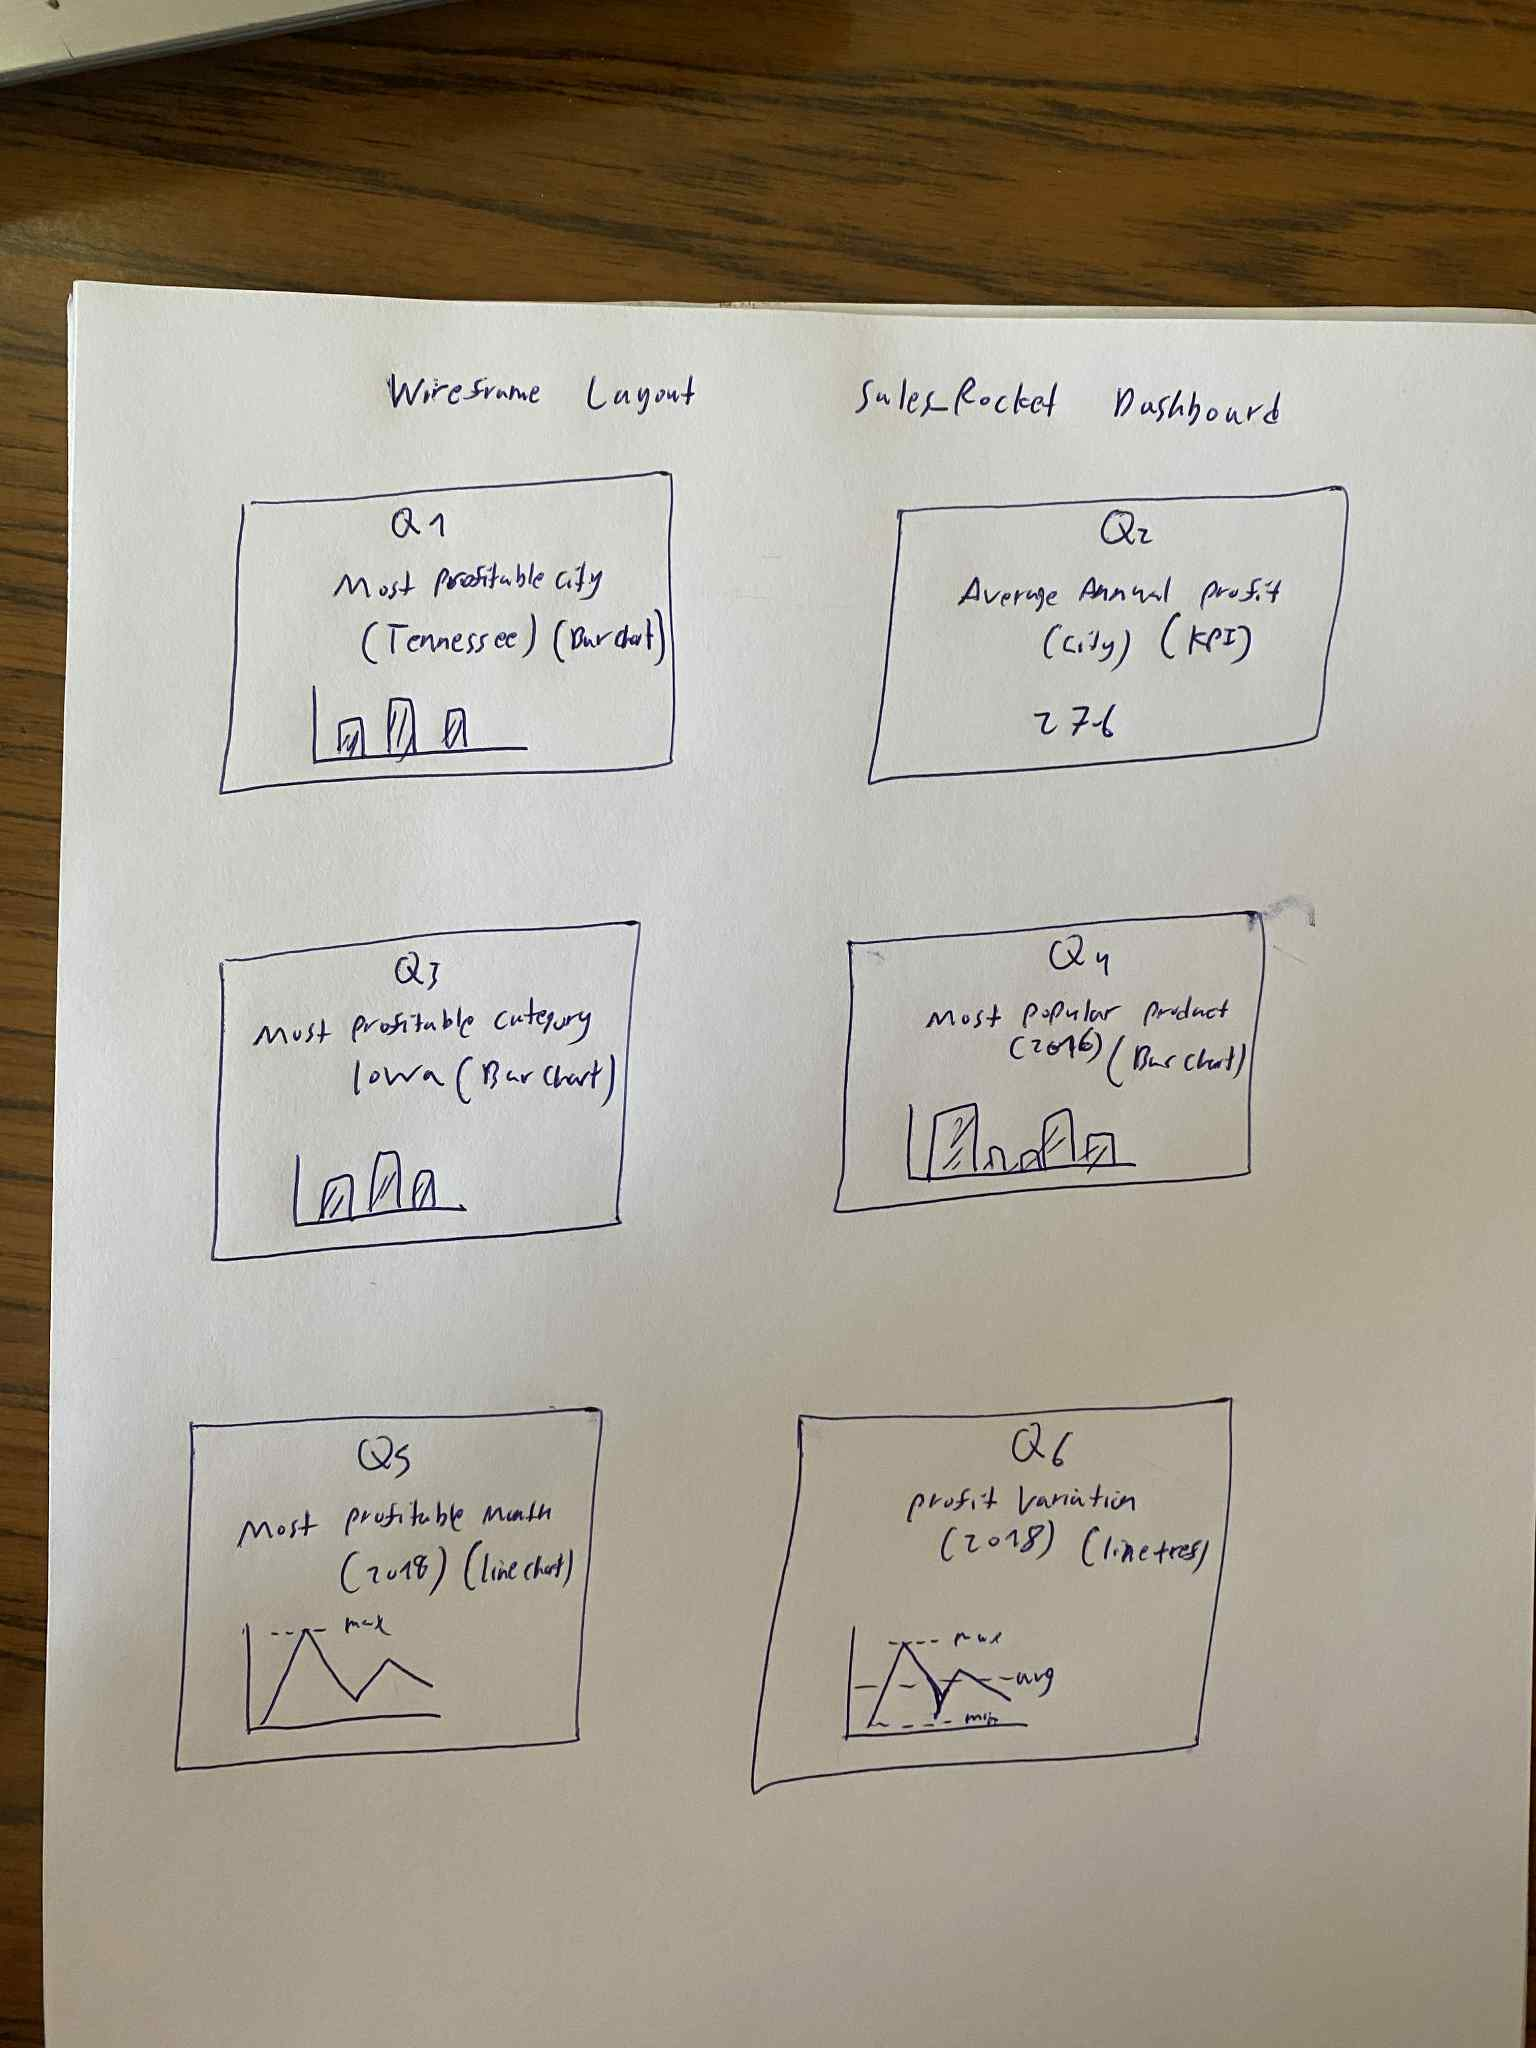 Wireframe Layout Sales_Rocket Dashboard
Q1
Most profitable city
(Tennessee) (Bar chart)
Q2
Average Annual profit
(city) (KPI)
276
Q3
Most profitable category
Iowa (Bar Chart)
Q4
Most popular product
(2016) (Bar Chart)
Q5
Most profitable Month
(2018) (line chart)
max
Q6
profit Variation
(2018) (line
max
avg
min